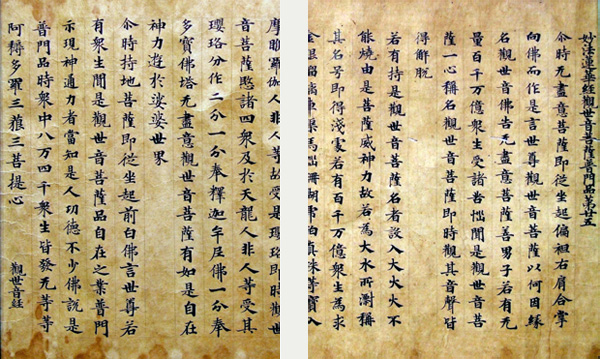 妙法蓮華經觀世音菩薩普門品第廿五
尒時无盡意菩薩即從坐起偏袒右肩合掌
向佛而作是言世尊觀世音菩薩以何因緣
名觀世音佛告无盡意菩薩善男子若有无
量百千万億衆生受諸苦惱聞是觀世音菩
薩一心稱名觀世音菩薩即時觀其音聲皆
得解脫
若有持是觀世音菩薩名者設入大火火不
能燒由是菩薩威神力故若為大水所漂稱
其名号即得淺處若有百千万億衆生為求
金銀瑠璃車璖馬瑙珊瑚真珠等寶入
摩睺羅伽人非人等故受是瓔珞即時觀世
音菩薩愍諸四衆及於天龍人非人等受其
瓔珞分作二分一分奉釋迦牟尼佛一分奉
多寶佛塔无盡意觀世音菩薩有如是自在
神力遊於娑婆世界
尒時持地菩薩即從坐起前白佛言世尊若
有衆生聞是觀世音菩薩品自在之業普門
示現神通力者當知是人功德不少佛說是
普門品時衆中八万四千衆生皆發无等等
阿耨多羅三藐三菩提心
觀世音經